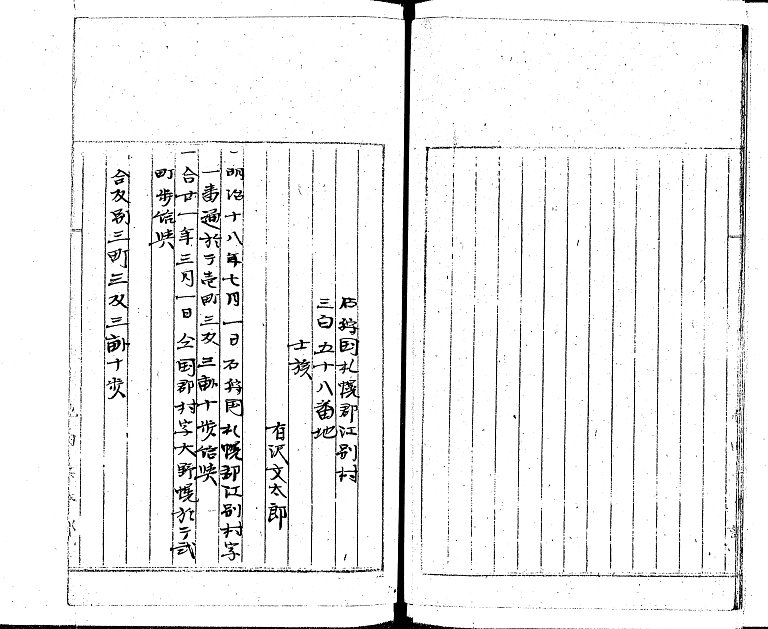 石狩国札幌郡江別村
三百五十八番地
士族
有沢文太郎
一明治十八年七月一日石狩国札幌郡江別村字
一番通於テ壱町三反三畝十歩給与
一仝廿一年三月一日仝国郡村字大野幌於テ弐
町歩給与
合反別三町三反三畝十歩